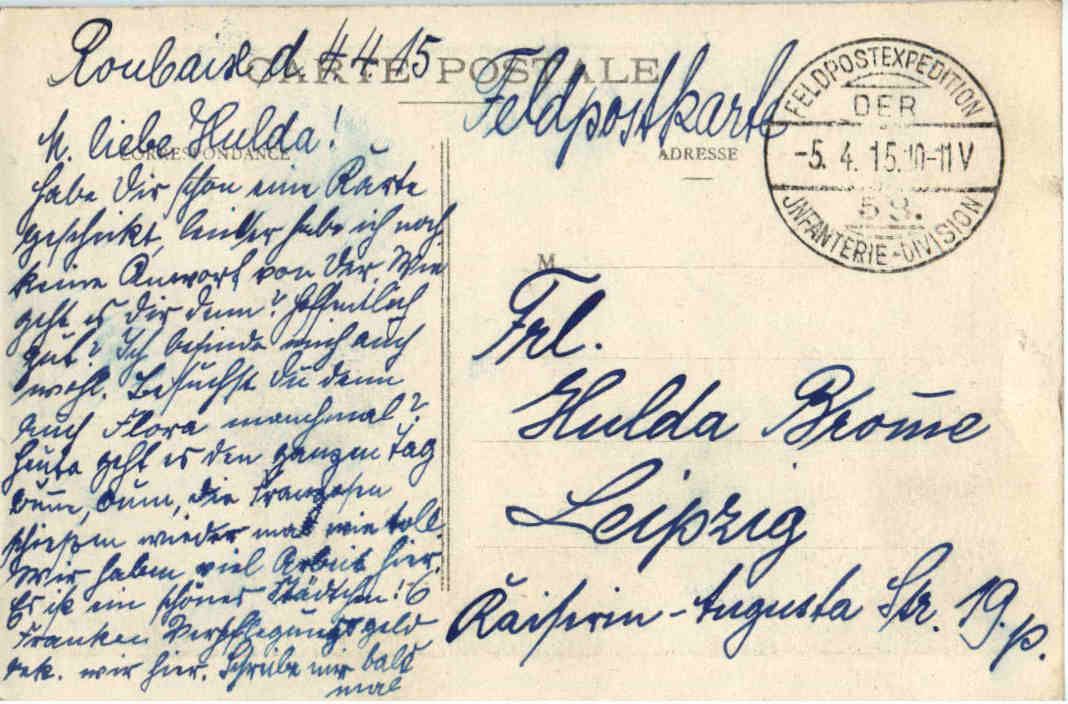 Roubaix d. 4.4.15
CARTE POSTALE
Feldpostkarte
CORRESPONDANCE
ADRESSE
FELDPOSTEXPEDITION
DER
-5. 4. 15. 10-11 V
58.
INFANTERIE-DIVISION
M. liebe Hulda!
habe Dir schon eine Karte
geschickt, leider habe ich noch
keine Antwort von Dir. Wie
geht es Dir denn? Hoffentlich
gut? Ich befinde mich auch
wohl. Besuchst Du denn
auch Flora manchmal?
Heute geht es den ganzen Tag
bum, bum, die Franzosen
schießen wieder mal wie toll.
Wir haben viel Arbeit hier.
Es ist ein schönes Städtchen! 6
Franken Verpflegungsgeld
bek. wir hier. Schreibe mir bald
mal
M
Frl.
Hulda Brome
Leipzig
Kaiserin-Augusta Str. 19. p.